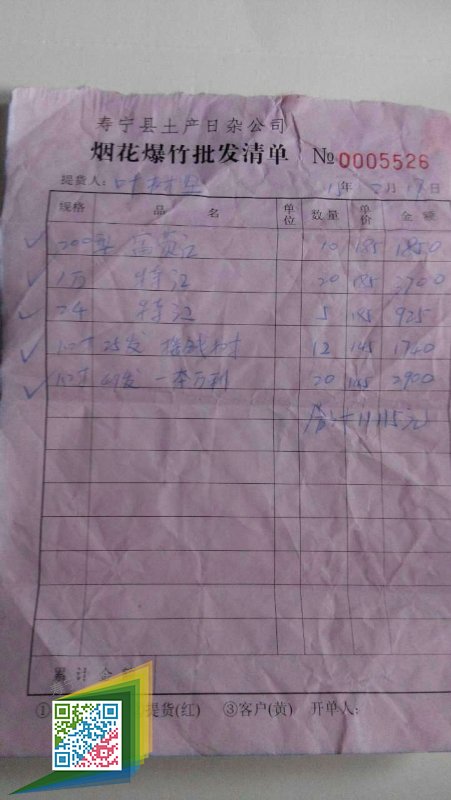 寿宁县土产日杂公司
烟花爆竹批发清单 №0005526
提货人: 叶 年 月 日
规格 品名 单位 数量 单价 金额
200 富贵红 10 185 1850
1万 特红 20 185 3700
24 特红 5 185 925
1.0寸25发 摇钱树 12 145 1740
1.0寸 发 一本万利 20 145 2900
合计11115元
累计金额
① 提货(红) ③客户(黄) 开单人: